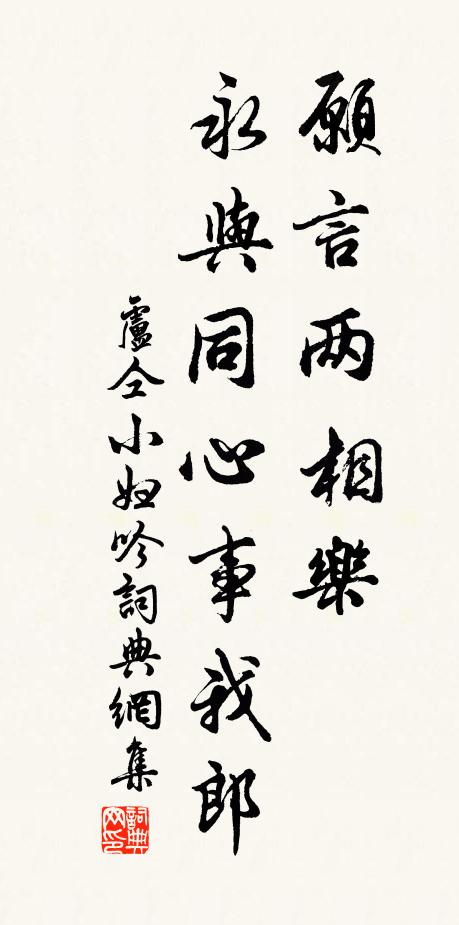 願言两相樂
永與同心事我郎
盧仝小婦吟詞典網集
詞典
网印